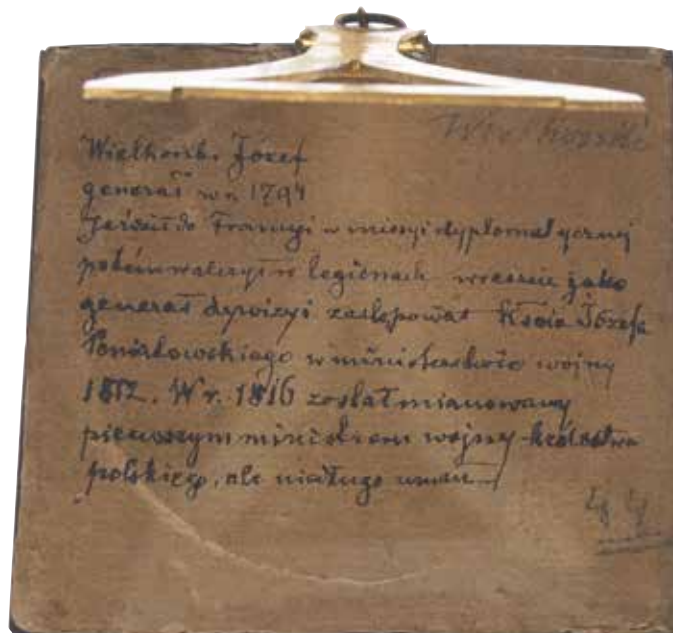 Wielhorski
Wielhorski Józef
generał w r. 1794
Jeździł do Francyi w misyi dyplomatycznej
potem walczył w legionach wreszcie jako
generał dywizyi zastępował Księcia Józefa
Poniatowskiego w ministerstwie wojny
1812. W r. 1816 został mianowany
pierwszym ministrem wojny królestwa
polskiego, ale niedługo umarł